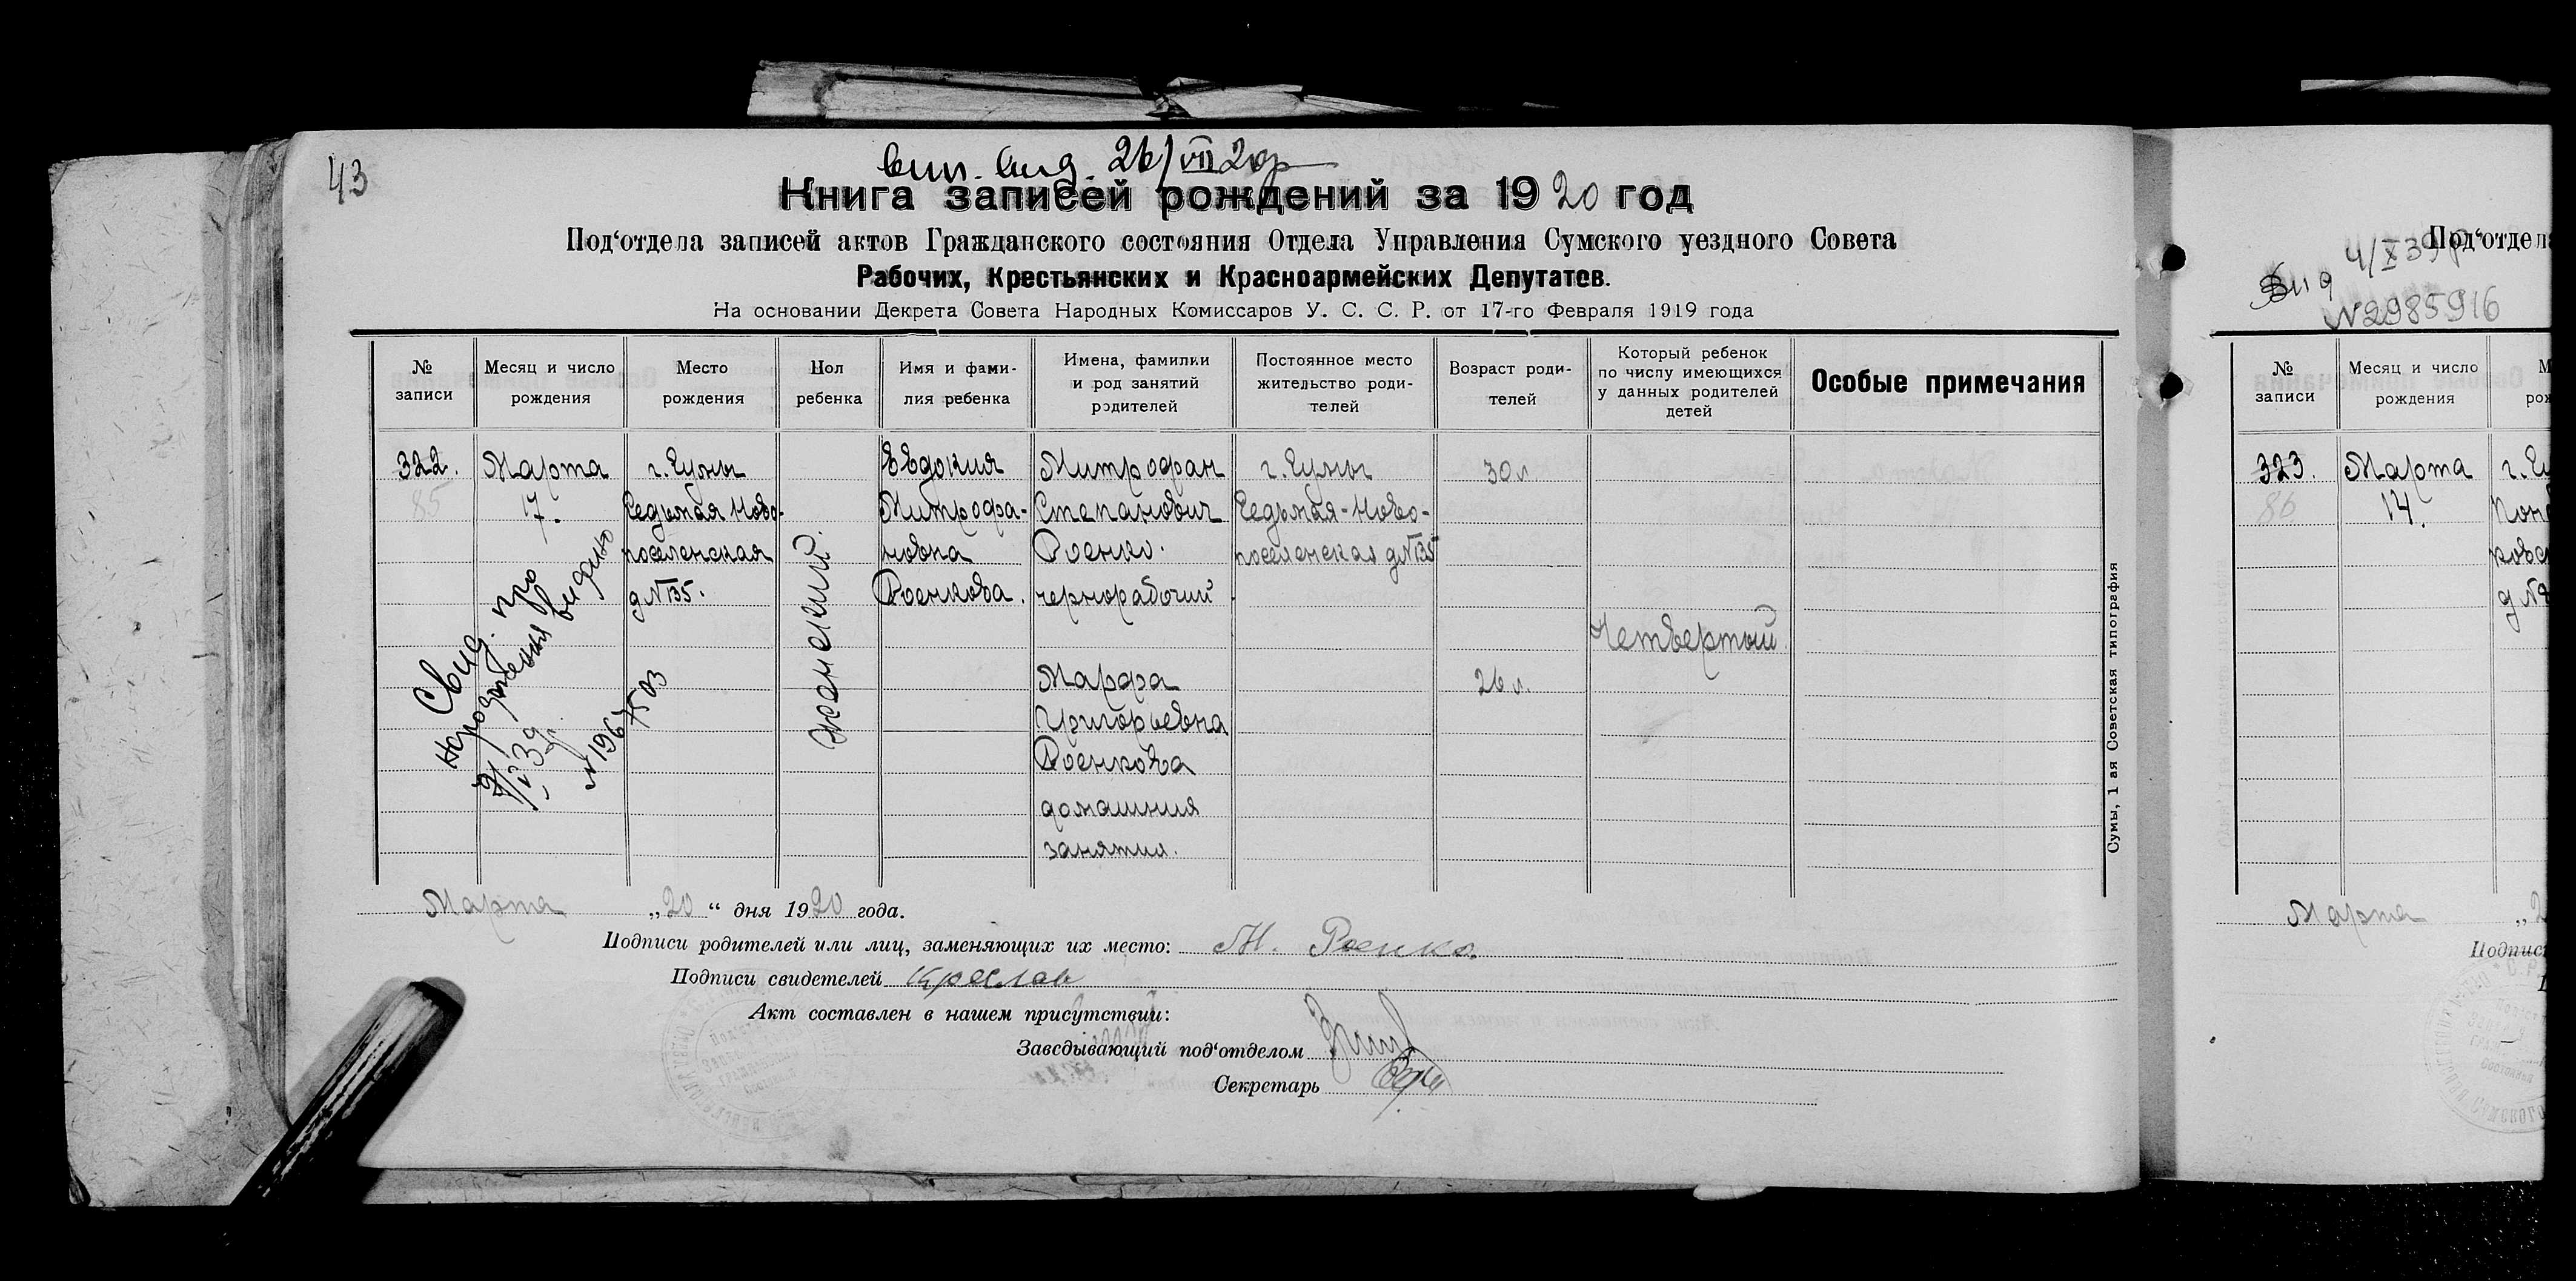 43
вип. вид. 26/VII 20р
Книга записей рождений за 1920 год
Под‘отдела записей актов Гражданского состояния Отдела Управления Сумского уездного Совета
Рабочих, Крестьянских и Красноармейских Депутатов.
На основании Декрета Совета Народных Комиссаров У. С. С. Р. от 17-го Февраля 1919 года
№
записи
Месяц и число
рождения
Место
рождения
Пол
ребенка
Имя и фами-
лия ребенка
Имена, фамилии
и род занятий
родителей
Постоянное место
жительство роди-
телей
Возраст роди-
телей
Который ребенок
по числу имеющихся
у данных родителей
детей
Особые примечания
322.
85
Марта
17.
г. Сумы
Седьмая Ново-
поселенская
д №135.
женский.
Евдокия
Митрофа-
новна
Роенкова.
Митрофан
Степанович
Роенко.
чернорабочий
Марфа
Григорьевна
Роенкова
домашния
занятия.
г. Сумы
Седьмая-Ново-
поселенская д №135
30 л.
26 л.
Четвертый
Свид. про
народження видано
№ 196
7503
Сумы, 1 ая Советская типография
Марта „20“ дня 1920 года.
Подписи родителей или лиц, заменяющих их место: М. Роенко.
Подписи свидетелей
Акт составлен в нашем присутствии:
Заведывающий под‘отделом
Секретарь
4/X 39р
Под‘отдел
Вид
№2985916
№
записи
Месяц и число
рождения
323.
86
Марта
14.
Марта